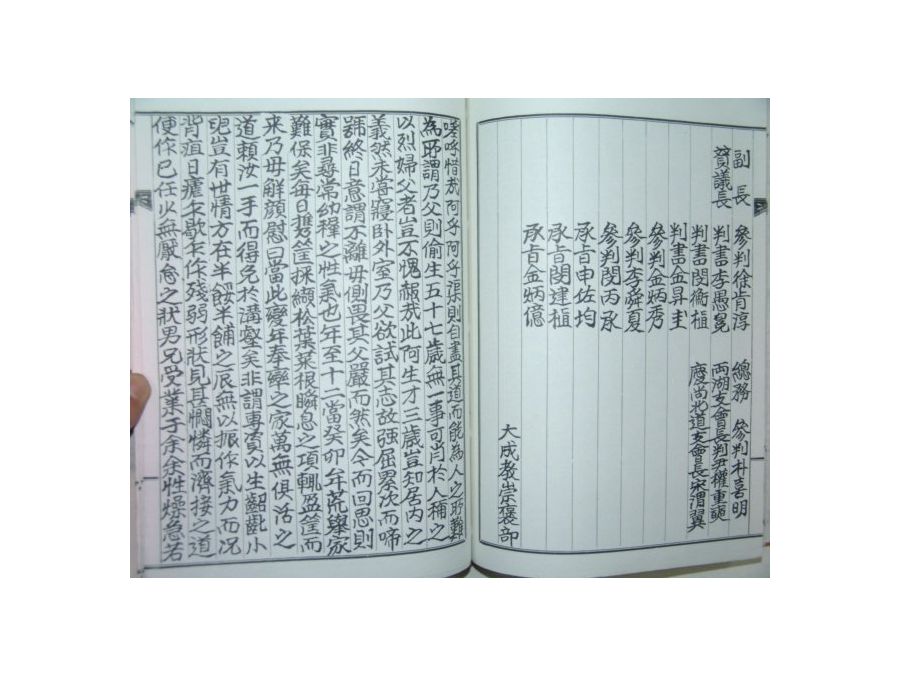 副長 參判徐肯淳 總務 參判朴喜明
贊議長 判書李愚冕 兩湖支會長判尹權重奭
判書閔衡植 慶尙北道支會長宋渭翼
判書金昇圭
參判金炳秀
參判李舜夏
參判閔丙承
承旨申佐均
承旨閔建植
承旨金炳億 大成敎崇褒部
嗟呼惜哉阿乎阿乎渠則自盡其道而能為人之所難
為所謂乃父則偷生五十七歲無一事可肖於人稱之
以烈婦父者豈不愧赧哉此阿生才三歲豈知居內之
義然未嘗寢卧外室乃父欲試其志故强屈累次而啼
號終日意謂不離母側畏其父嚴而然矣今而回思則
實非尋常幼穉之性氣也年至十二當癸卯年荒擧家
難保矣每日携筐採纈松葉菜根瞬息之項輒盈筐而
来乃母解顏慰曰當此變年奉率之家萬無俱活之
道賴汝一手而得免於溝壑矣非謂專責以生齠齔小
兒豈有世情方在半餒半餔之辰無以振作氣力而况
背疽日瘧乍歇乍作殘弱形状見甚憫憐而濟接之道
便作已任少無厭怠之状男兄受業于余余性燥急若